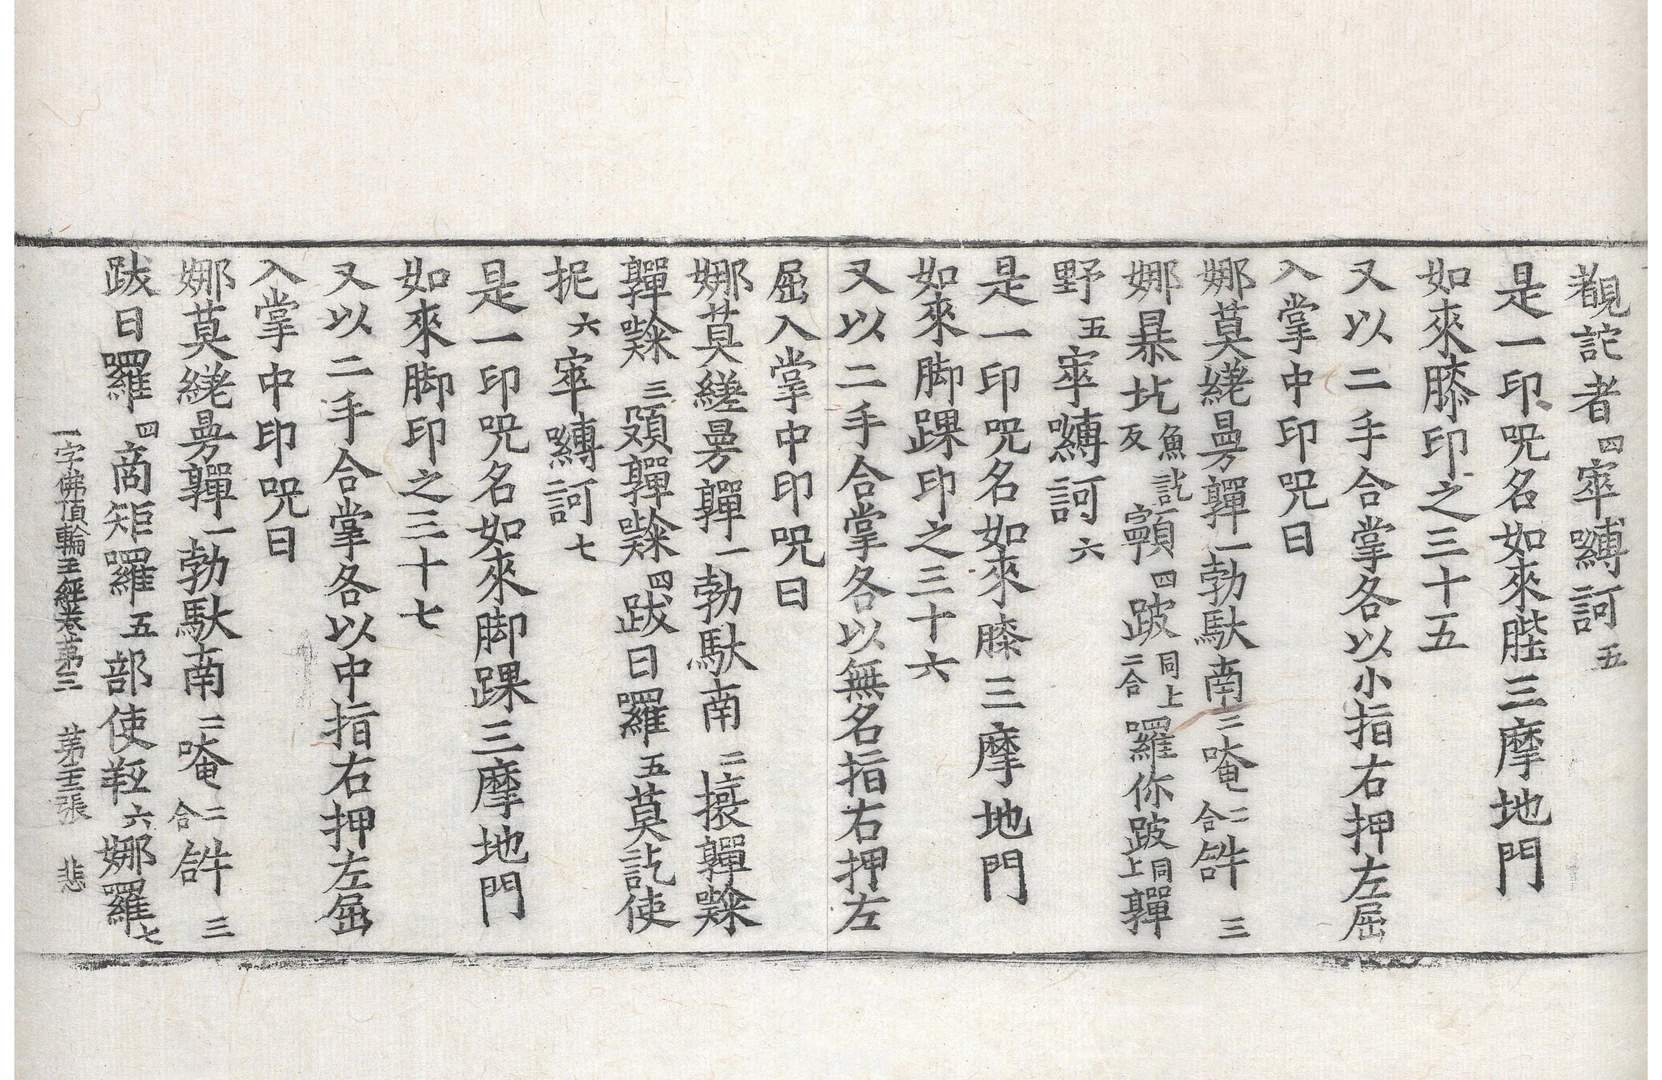 覩詑者四窣嚩訶五
是一印呪名如來䏶三摩地門
如來膝印之三十五
又以二手合掌各以小指右押左屈
入掌中印呪曰
娜莫縒曼嚲一勃馱南二唵二合𤙖三
娜暴圪魚訖反顐四跛同上二合囉你跛同上嚲
野五窣嚩訶六
是一印呪名如來膝三摩地門
如來脚踝印之三十六
又以二手合掌各以無名指右押左
屈入掌中印呪曰
娜莫縒曼嚲一勃馱南二攘嚲㘑
嚲㘑三頞嚲㘑四跋日囉五莫訖使
抳六窣嚩訶七
是一印呪名如來脚踝三摩地門
如來脚印之三十七
又以二手合掌各以中指右押左屈
入掌中印呪曰
娜莫縒曼嚲一勃馱南二唵二合𤙖三
跋日囉四商矩囉五部使𩋾六娜囉七
一字佛頂輪王經卷第三 第王張 悲